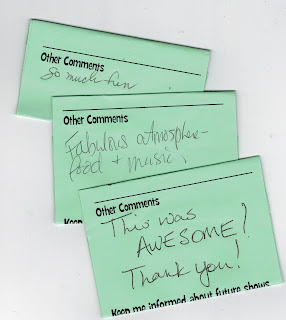 Other Comments
So much fun
Other Comments
Fabulous atmosphere-
food + music!
Keep
Other Comments
This was
AWESOME!
Thank you!
Keep me informed about future shows